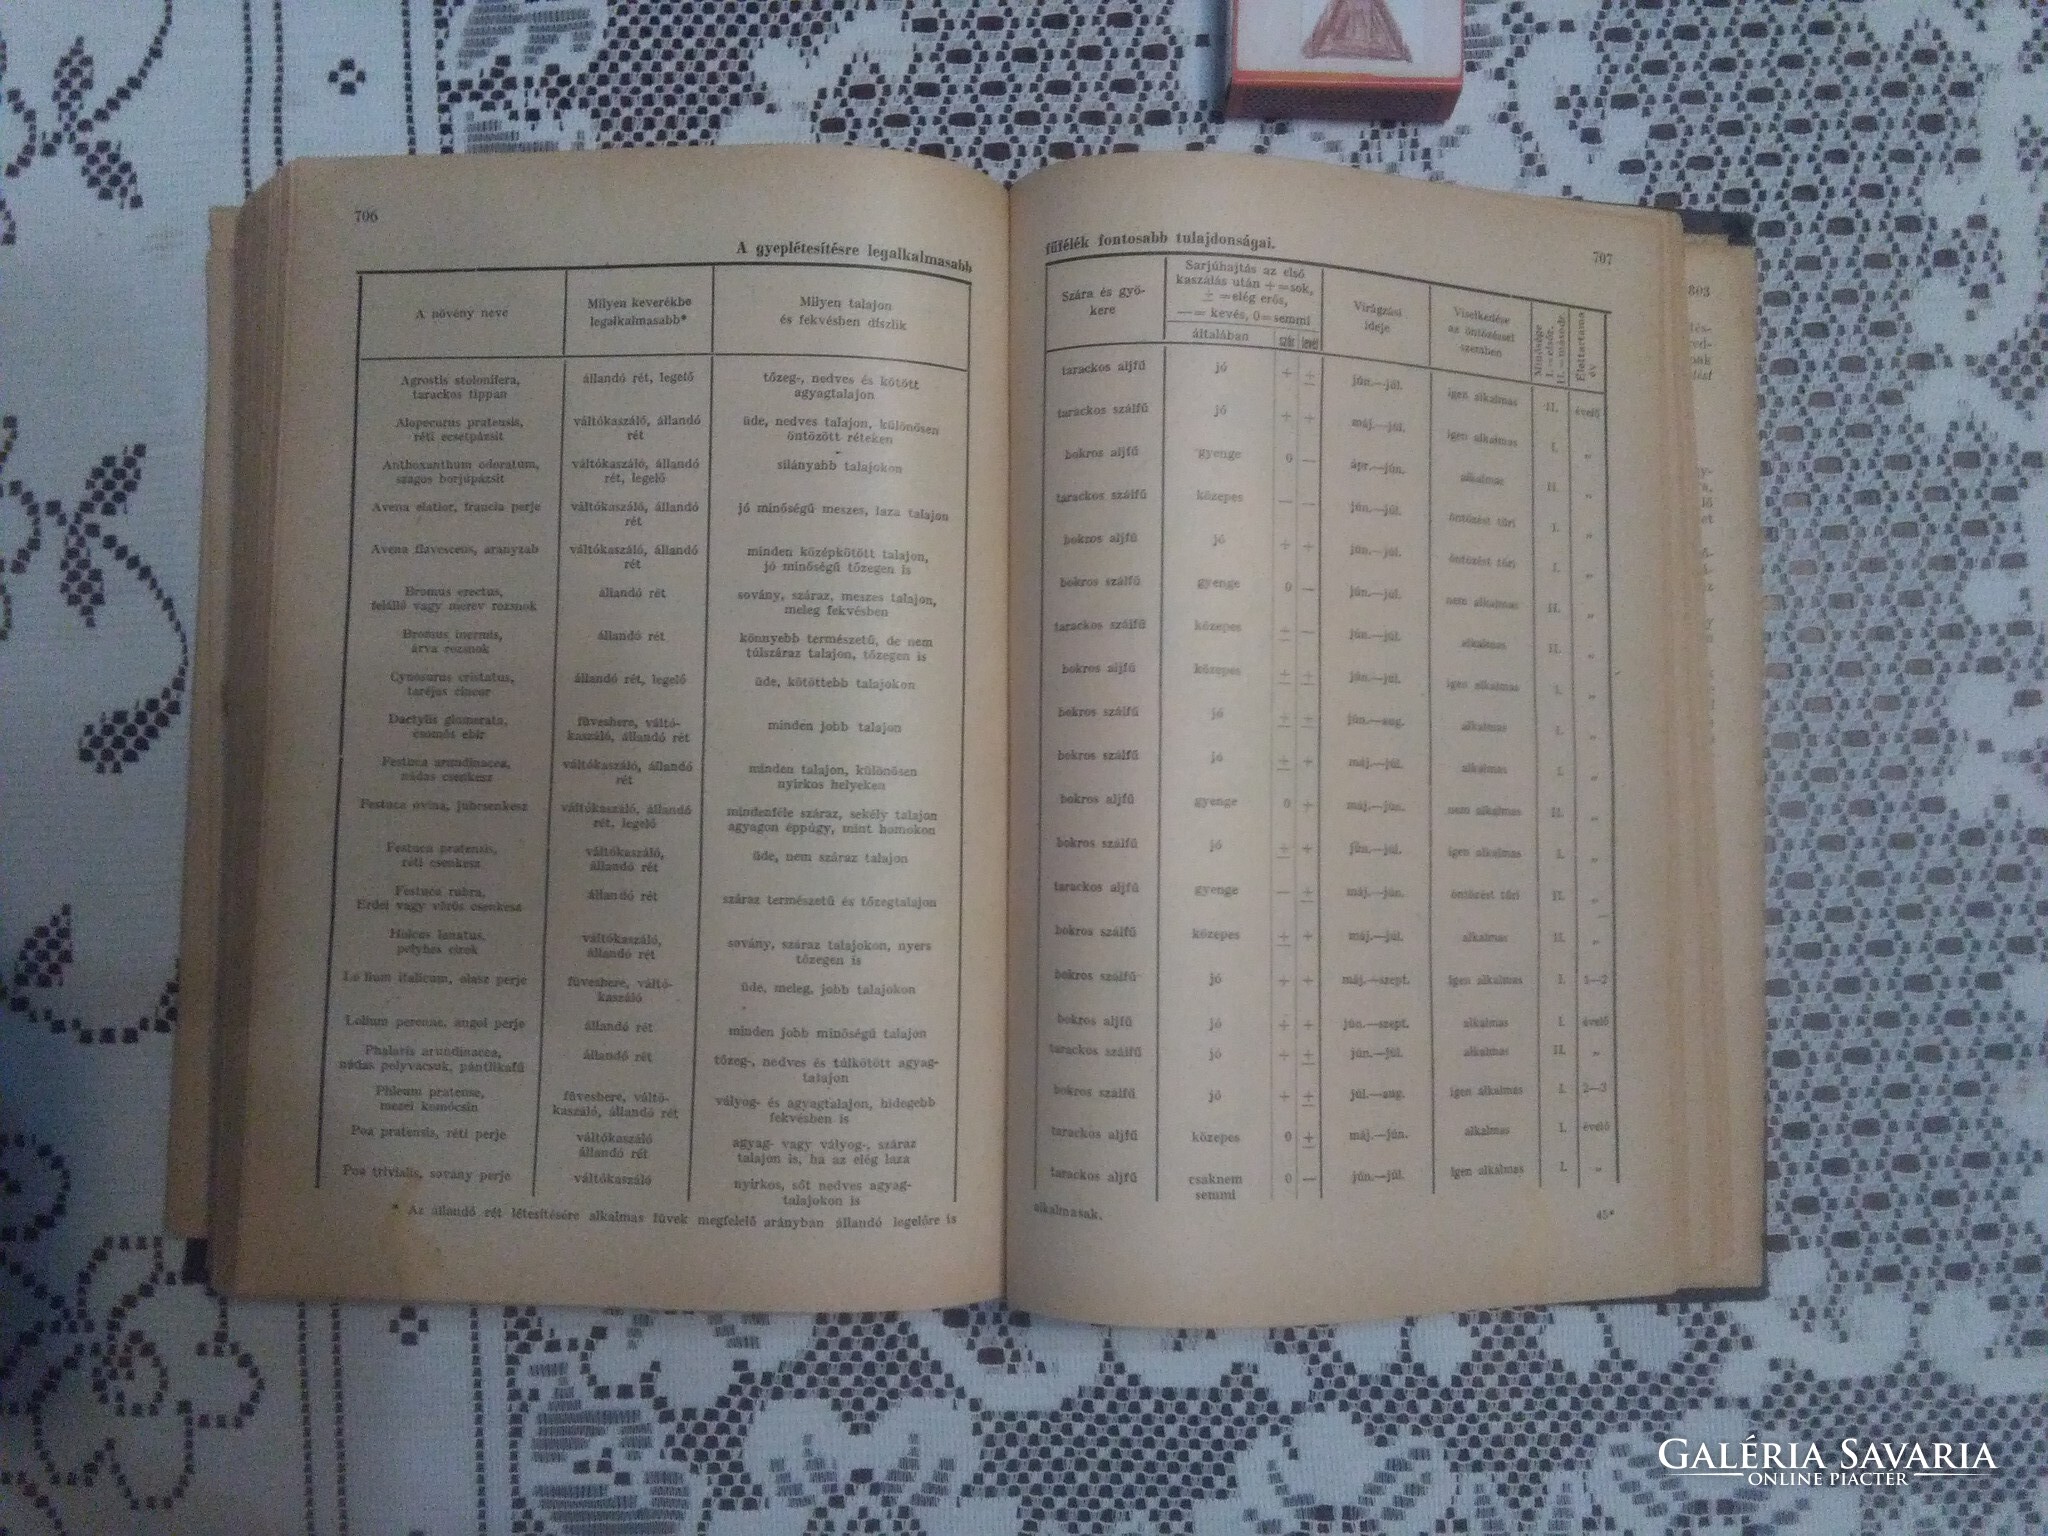 706
A gyeplétesítésre legalkalmasabb
A növény neve
Milyen keverékbe
legalkalmasabb*
Milyen talajon
és fekvésben díszlik
Agrostis stolonifera,
tarackos tippan
állandó rét, legelő
tőzeg-, nedves és kötött
agyagtalajon
Alopecurus pratensis,
réti ecsetpázsit
váltókaszáló, állandó
rét
üde, nedves talajon, különösen
öntözött réteken
Anthoxanthum odoratum,
szagos borjúpázsit
váltókaszáló, állandó
rét, legelő
silányabb talajokon
Avena elatior, francia perje
váltókaszáló, állandó
rét
jó minőségű meszes, laza talajon
Avena flavescens, aranyzab
váltókaszáló, állandó
rét
minden középkötött talajon,
jó minőségű tőzegen is
Bromus erectus,
felálló vagy merev rozsnok
állandó rét
sovány, száraz, meszes talajon,
meleg fekvésben
Bromus inermis,
árva rozsnok
állandó rét
könnyebb természetű, de nem
túlszáraz talajon, tőzegen is
Cynosurus cristatus,
taréjos cincor
állandó rét, legelő
üde, kötöttebb talajokon
Dactylis glomerata,
csomós ebír
füveshere, váltó-
kaszáló, állandó rét
minden jobb talajon
Festuca arundinacea,
nádas csenkesz
váltókaszáló, állandó
rét
minden talajon, különösen
nyirkos helyeken
Festuca ovina, juhcsenkesz
váltókaszáló, állandó
rét, legelő
mindenféle száraz, sekély talajon
agyagon éppúgy, mint homokon
Festuca pratensis,
réti csenkesz
váltókaszáló,
állandó rét
üde, nem száraz talajon
Festuca rubra,
Erdei vagy vörös csenkesz
állandó rét
száraz természetű és tőzegtalajon
Holcus lanatus,
pelyhes cirok
váltókaszáló,
állandó rét
sovány, száraz talajokon, nyers
tőzegen is
Lo lium italicum, olasz perje
füveshere, váltó-
kaszáló
üde, meleg, jobb talajokon
Lolium perenne, angol perje
állandó rét
minden jobb minőségű talajon
Phalaris arundinacea,
nádas polyvacsuk, pántlikafű
állandó rét
tőzeg-, nedves és túlkötött agyag-
talajon
Phleum pratense,
mezei komócsin
füveshere, váltó-
kaszáló, állandó rét
vályog- és agyagtalajon, hidegebb
fekvésben is
Poa pratensis, réti perje
váltókaszáló
állandó rét
agyag- vagy vályog-, száraz
talajon is, ha az elég laza
Poa trivialis, sovány perje
váltókaszáló
nyirkos, sőt nedves agyag-
talajokon is
* Az állandó rét létesítésére alkalmas füvek megfelelő arányban állandó legelőre is
fűfélék fontosabb tulajdonságai.
707
Szára és gyö-
kere
Sarjúhajtás az első
kaszálás után +=sok,
±=elég erős,
—=kevés, 0=semmi
általában
szár
levél
Virágzási
ideje
Viselkedése
az öntözéssel
szemben
Minősége
I.=elsőr.
II.=másodr.
Élettartama
év
tarackos aljfű jó + ± jún.—júl. igen alkalmas II. évelő
tarackos szálfű jó + + máj.—júl. igen alkalmas I. „
bokros aljfű gyenge 0 — ápr.—jún. alkalmas II. „
tarackos szálfű közepes — — jún.—júl. öntözést tűri I. „
bokros aljfű jó + + jún.—júl. öntözést tűri I. „
bokros szálfű gyenge 0 — jún.—júl. nem alkalmas II. „
tarackos szálfű közepes ± — jún.—júl. alkalmas II. „
bokros aljfű közepes ± ± jún.—júl. igen alkalmas I. „
bokros szálfű jó ± ± jún.—aug. alkalmas I. „
bokros szálfű jó ± + máj.—júl. alkalmas I. „
bokros aljfű gyenge 0 + máj.—jún. nem alkalmas II. „
bokros szálfű jó ± + jún.—júl. igen alkalmas I. „
tarackos aljfű gyenge — ± máj.—jún. öntözést tűri II. „
bokros szálfű közepes ± + máj.—júl. alkalmas II. „
bokros szálfű jó + + máj.—szept. igen alkalmas I. 1—2
bokros aljfű jó + + jún.—szept. alkalmas I. évelő
tarackos szálfű jó + ± jún.—júl. alkalmas II. „
bokros szálfű jó + ± júl.—aug. igen alkalmas I. 2—3
tarackos aljfű közepes 0 ± máj.—jún. alkalmas I. évelő
tarackos aljfű csaknem 0 — jún.—júl. igen alkalmas I. „
semmi
alkalmasak.
45*
803
GALÉRIA SAVARIA
ONLINE PIACTÉR